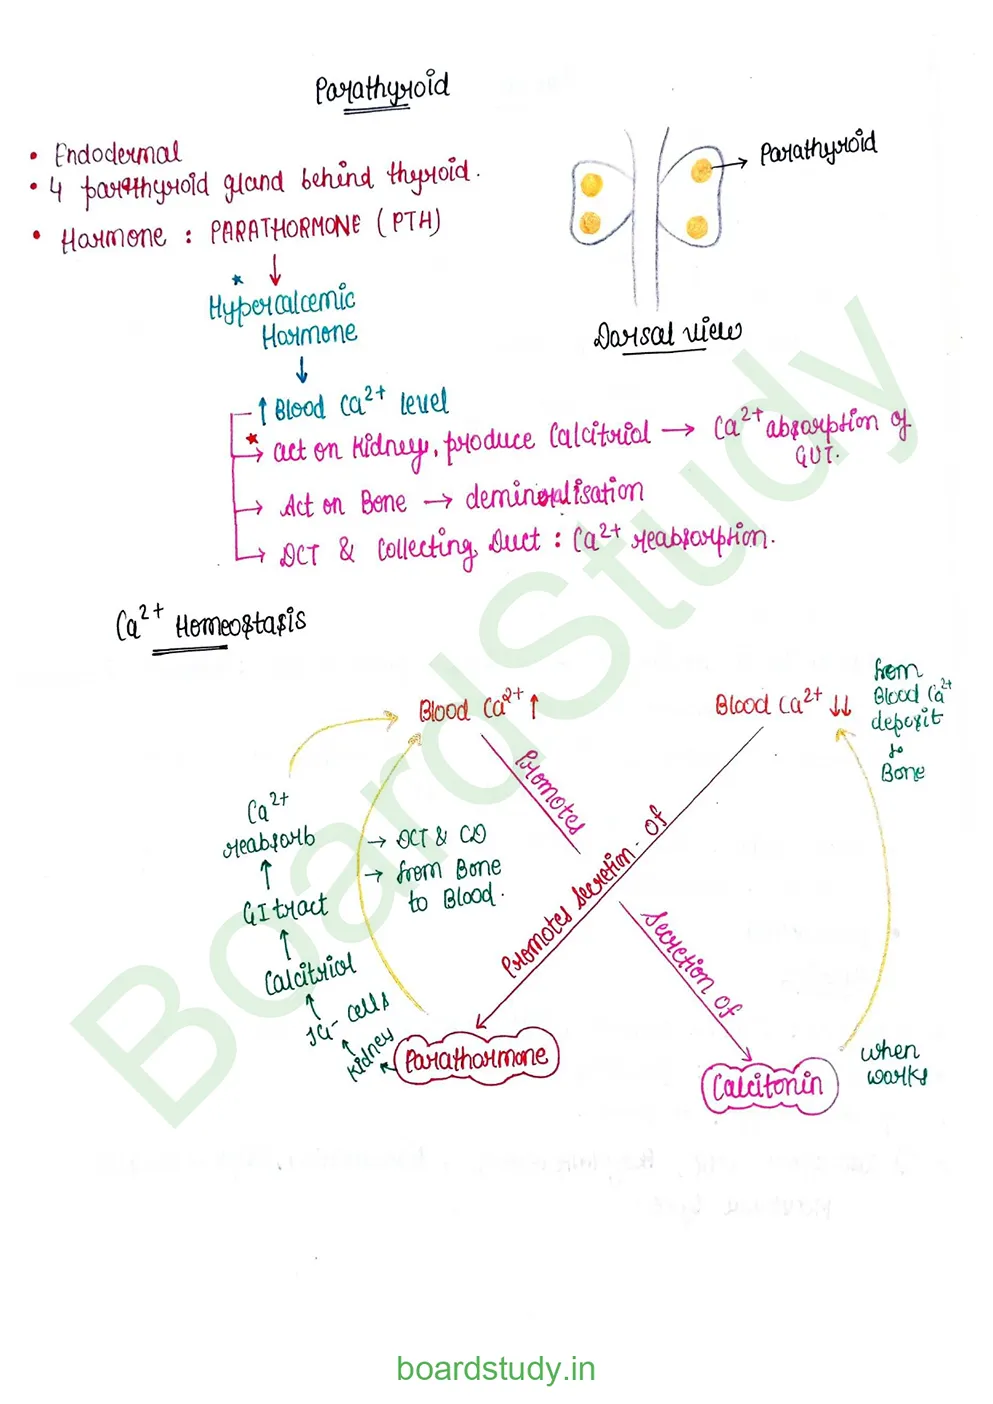 Parathyroid
• Endodermal
• 4 parathyroid gland behind thyroid.
• Hormone : PARATHORMONE (PTH)
Parathyroid
Dorsal view
↓
* Hypercalcemic
Hormone
↓
↑ Blood Ca2+ level
* → act on Kidney, produce Calcitriol → Ca2+ absorption of
GUT.
→ Act on Bone → demineralisation
→ DCT & Collecting Duct : Ca2+ reabsorption.
Ca2+ Homeostasis
Blood Ca2+ ↑
Blood Ca2+ ↓↓
from
Blood Ca2+
deposit
to
Bone
Promotes
secretion of
Promotes secretion of
Ca2+
reabsorb
↑
GI tract
↑
Calcitriol
↑
JG-cells
↑
Kidney
→ DCT & CD
→ from Bone
to Blood.
Parathormone
Calcitonin
when
works
BoardStudy
boardstudy.in